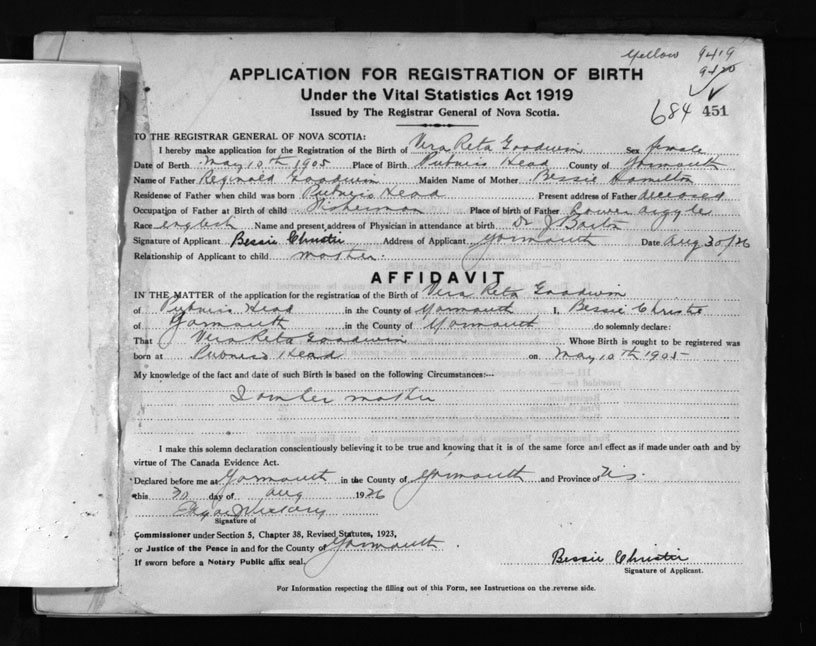 Yellow 9419
9420
APPLICATION FOR REGISTRATION OF BIRTH
Under the Vital Statistics Act 1919
Issued by The Registrar General of Nova Scotia.
684 451
TO THE REGISTRAR GENERAL OF NOVA SCOTIA:
I hereby make application for the Registration of the Birth of Vera Reta Goodwin Sex female
Date of Berth May 10th 1905 Place of Birth Pubnico Head County of Yarmouth
Name of Father Reginald Goodwin Maiden Name of Mother Bessie Hamilton
Residence of Father when child was born Pubnico Head Present address of Father deceased
Occupation of Father at Birth of child Fisherman Place of birth of Father Lower Argyle
Race english Name and present address of Physician in attendance at birth Dr J
Signature of Applicant Bessie Christie Address of Applicant Yarmouth Date Aug 30/26
Relationship of Applicant to child mother.
AFFIDAVIT
IN THE MATTER of the application for the registration of the Birth of Vera Reta Goodwin
of Pubnico Head in the County of Yarmouth I, Bessie Christie
of Yarmouth in the County of Yarmouth do solemnly declare:
That Vera Reta Goodwin Whose Birth is sought to be registered was
born at Pubnico Head on May 10th 1905
My knowledge of the fact and date of such Birth is based on the following Circumstances:—
I am her mother
I make this solemn declaration conscientiously believing it to be true and knowing that it is of the same force and effect as if made under oath and by
virtue of The Canada Evidence Act.
Declared before me at Yarmouth in the County of Yarmouth and Province of N.S.
this 30 day of Aug 1926
Signature of
Commissioner under Section 5, Chapter 38, Revised Statutes, 1923,
or Justice of the Peace in and for the County of Yarmouth
If sworn before a Notary Public affix seal.
Bessie Christie
Signature of Applicant.
For Information respecting the filling out of this Form, see Instructions on the reverse side.